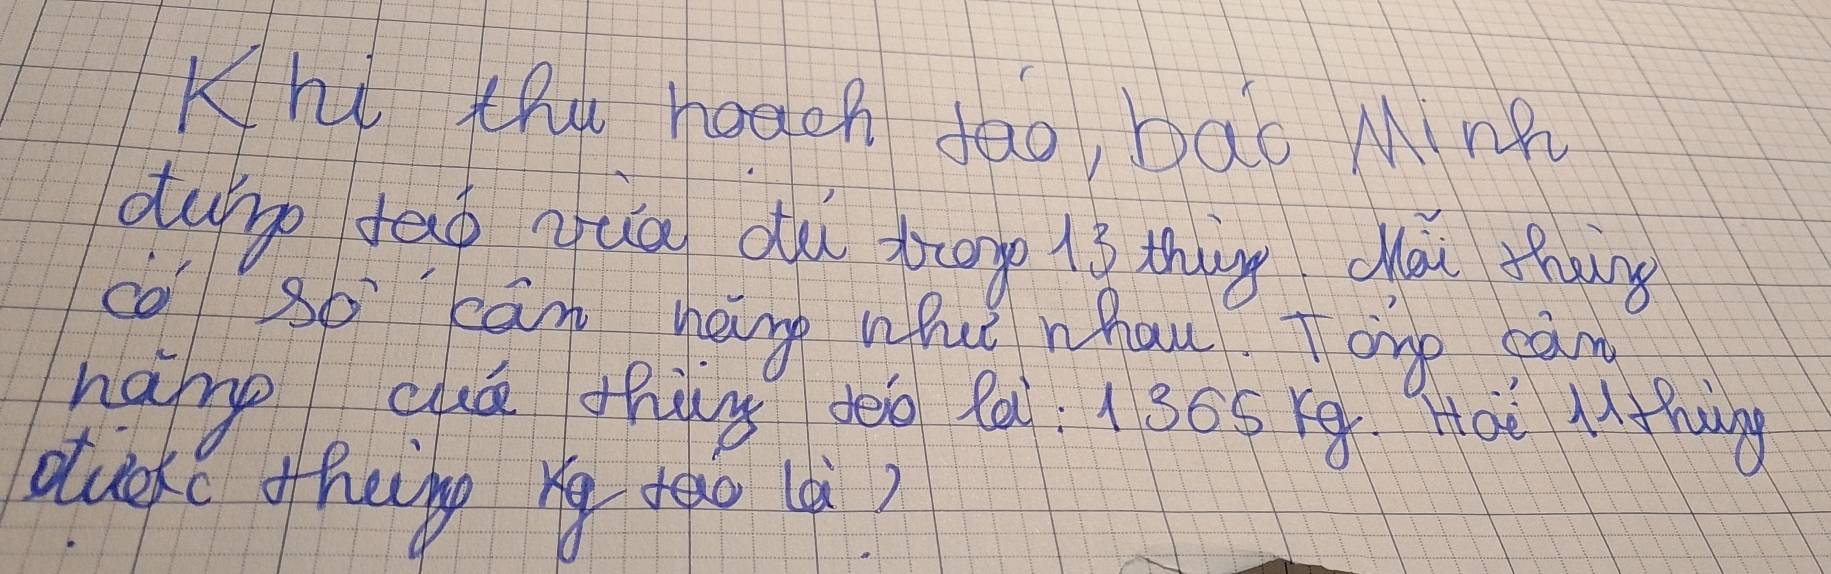 Khi thu hoạch táo, bác Minh
đựng táo vừa đủ trong 13 thùng. Mỗi thùng
có số cân nặng như nhau. Tổng cân
nặng của thùng táo là: 1365 kg. Hỏi 11 thùng
được thùng kg táo là?